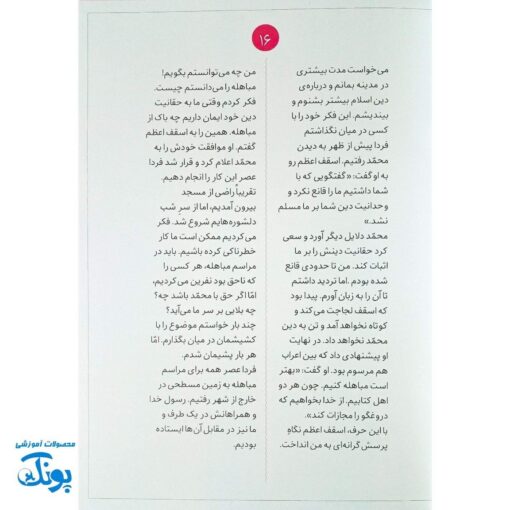 ۱۶
می‌خواست مدت بیشتری
در مدینه بمانم و درباره‌ی
دین اسلام بیشتر بشنوم و
بیندیشم. این فکر خود را با
کسی در میان نگذاشتم
فردا پیش از ظهر به دیدن
محمّد رفتیم. اسقف اعظم رو
به او گفت: «گفتگویی که با
شما داشتیم ما را قانع نکرد و
وحدانیت دین شما بر ما مسلم
نشد.»
محمّد دلایل دیگر آورد و سعی
کرد حقانیت دینش را بر ما
اثبات کند. من تا حدودی قانع
شده بودم. اما تردید داشتم
تا آن را به زبان آورم. پیدا بود
که اسقف لجاجت می‌کند و
کوتاه نخواهد آمد و تن به دین
محمّد نخواهد داد. در نهایت
او پیشنهادی داد که بین اعراب
هم مرسوم بود. او گفت: «بهتر
است مباهله کنیم. چون هر دو
اهل کتابیم. از خدا بخواهیم که
دروغگو را مجازات کند».
با این حرف، اسقف اعظم نگاهِ
پرسش گرانه‌ای به من انداخت.
من چه می‌توانستم بگویم!
مباهله را می‌دانستم چیست.
فکر کردم وقتی ما به حقانیت
دین خود ایمان داریم چه باک از
مباهله. همین را به اسقف اعظم
گفتم. او موافقت خودش را به
محمّد اعلام کرد و قرار شد فردا
عصر این کار را انجام دهیم.
تقریباً راضی از مسجد
بیرون آمدیم، اما از سرِ شب
دلشوره‌هایم شروع شد. فکر
می‌کردیم ممکن است ما کار
خطرناکی کرده باشیم. باید در
مراسم مباهله، هر کسی را
که ناحق بود نفرین می‌کردیم،
امّا اگر حق با محمّد باشد چه؟
چه بلایی بر سر ما می‌آید؟
چند بار خواستم موضوع را با
کشیشمان در میان بگذارم. امّا
هر بار پشیمان شدم.
فردا عصر همه برای مراسم
مباهله به زمین مسطحی در
خارج از شهر رفتیم. رسول خدا
و همراهانش در یک طرف و
ما نیز در مقابل آن‌ها ایستاده
بودیم.
محصولات آموزشی
پونک